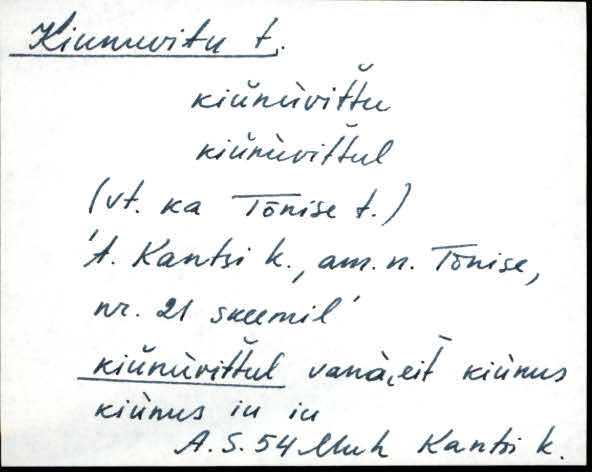 Kiunuvitu t.
kiŭnùvit̆t̆u
kiŭnùvit̆t̆ul
(vt. ka Tōnise t.)
't. Kantsi k., am. n. Tōnise,
nr. 21 skeemil'
kiŭnùvit̆t̆ul vanà, eit̄ kiùnus
kiùnus iu iu
A.S. 54 Muh Kantsi k.